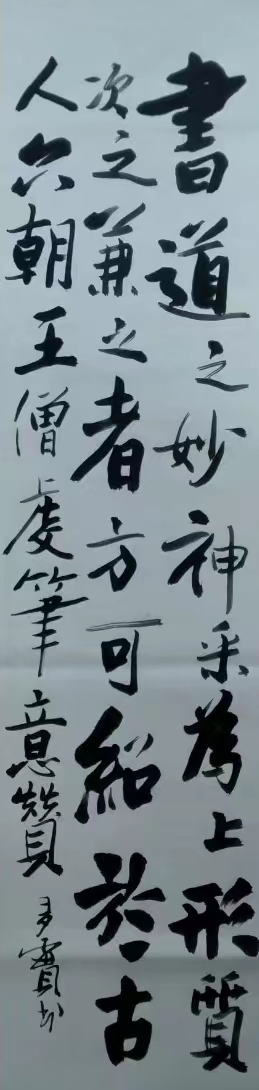 書道之妙神采為上形質
次之兼之者方可紹於古
人六朝王僧虔筆意贊
寶書